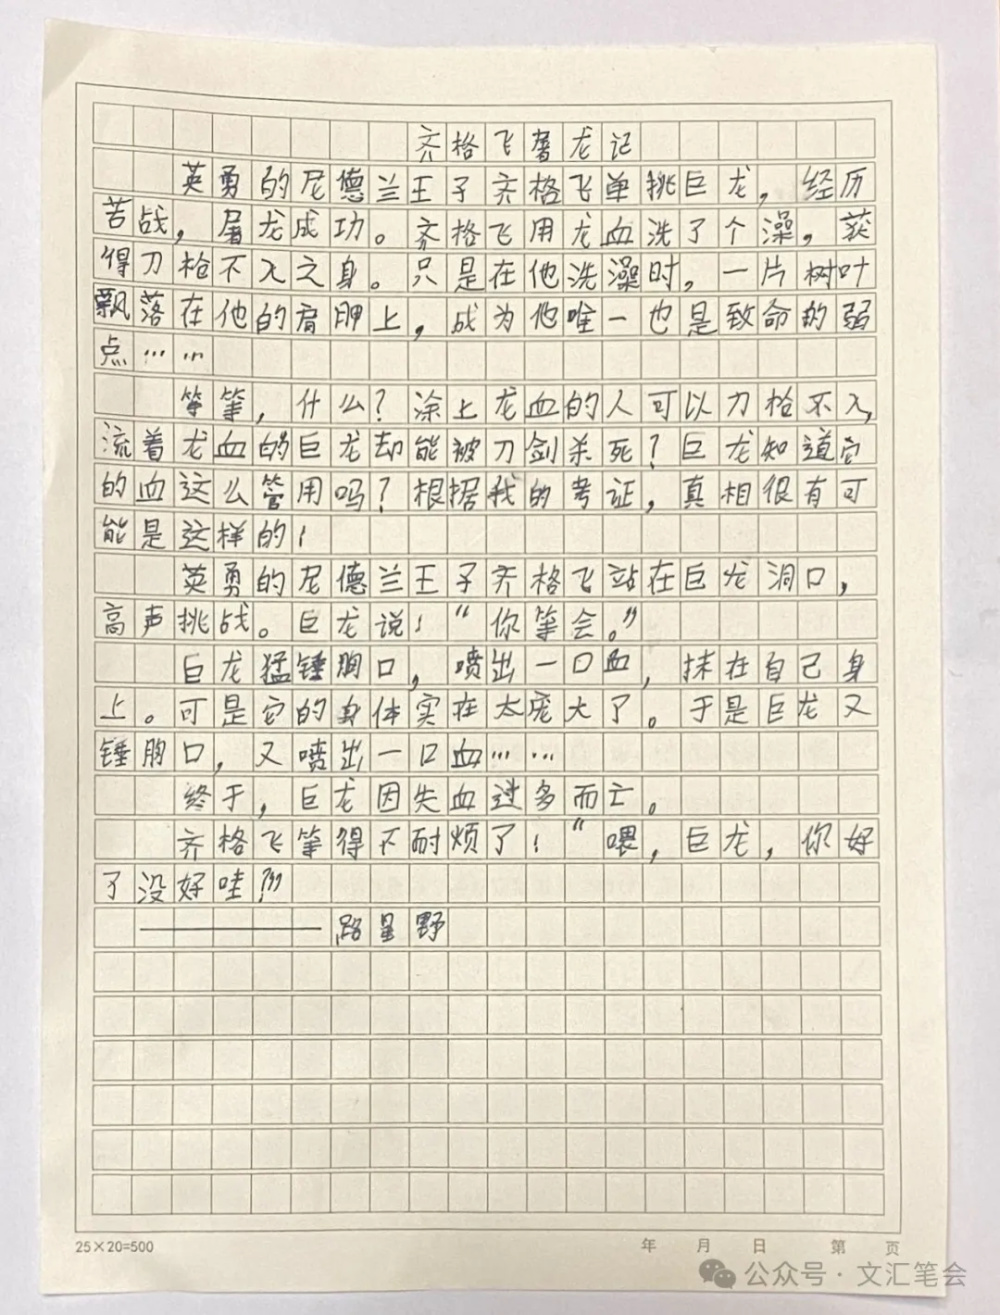 齐格飞屠龙记
英勇的尼德兰王子齐格飞单挑巨龙，经历
苦战，屠龙成功。齐格飞用龙血洗了个澡，获
得刀枪不入之身。只是在他洗澡时，一片树叶
飘落在他的肩胛上，成为他唯一也是致命的弱
点……
等等，什么？涂上龙血的人可以刀枪不入，
流着龙血的巨龙却能被刀剑杀死？巨龙知道它
的血这么管用吗？根据我的考证，真相很有可
能是这样的：
英勇的尼德兰王子齐格飞站在巨龙洞口，
高声挑战。巨龙说：“你等会。”
巨龙猛锤胸口，喷出一口血，抹在自己身
上。可是它的身体实在太庞大了。于是巨龙又
锤胸口，又喷出一口血……
终于，巨龙因失血过多而亡。
齐格飞等得不耐烦了：“喂，巨龙，你好
了没好哇？”
——路星野
25×20=500 年 月 日 第 页
公众号·文汇笔会